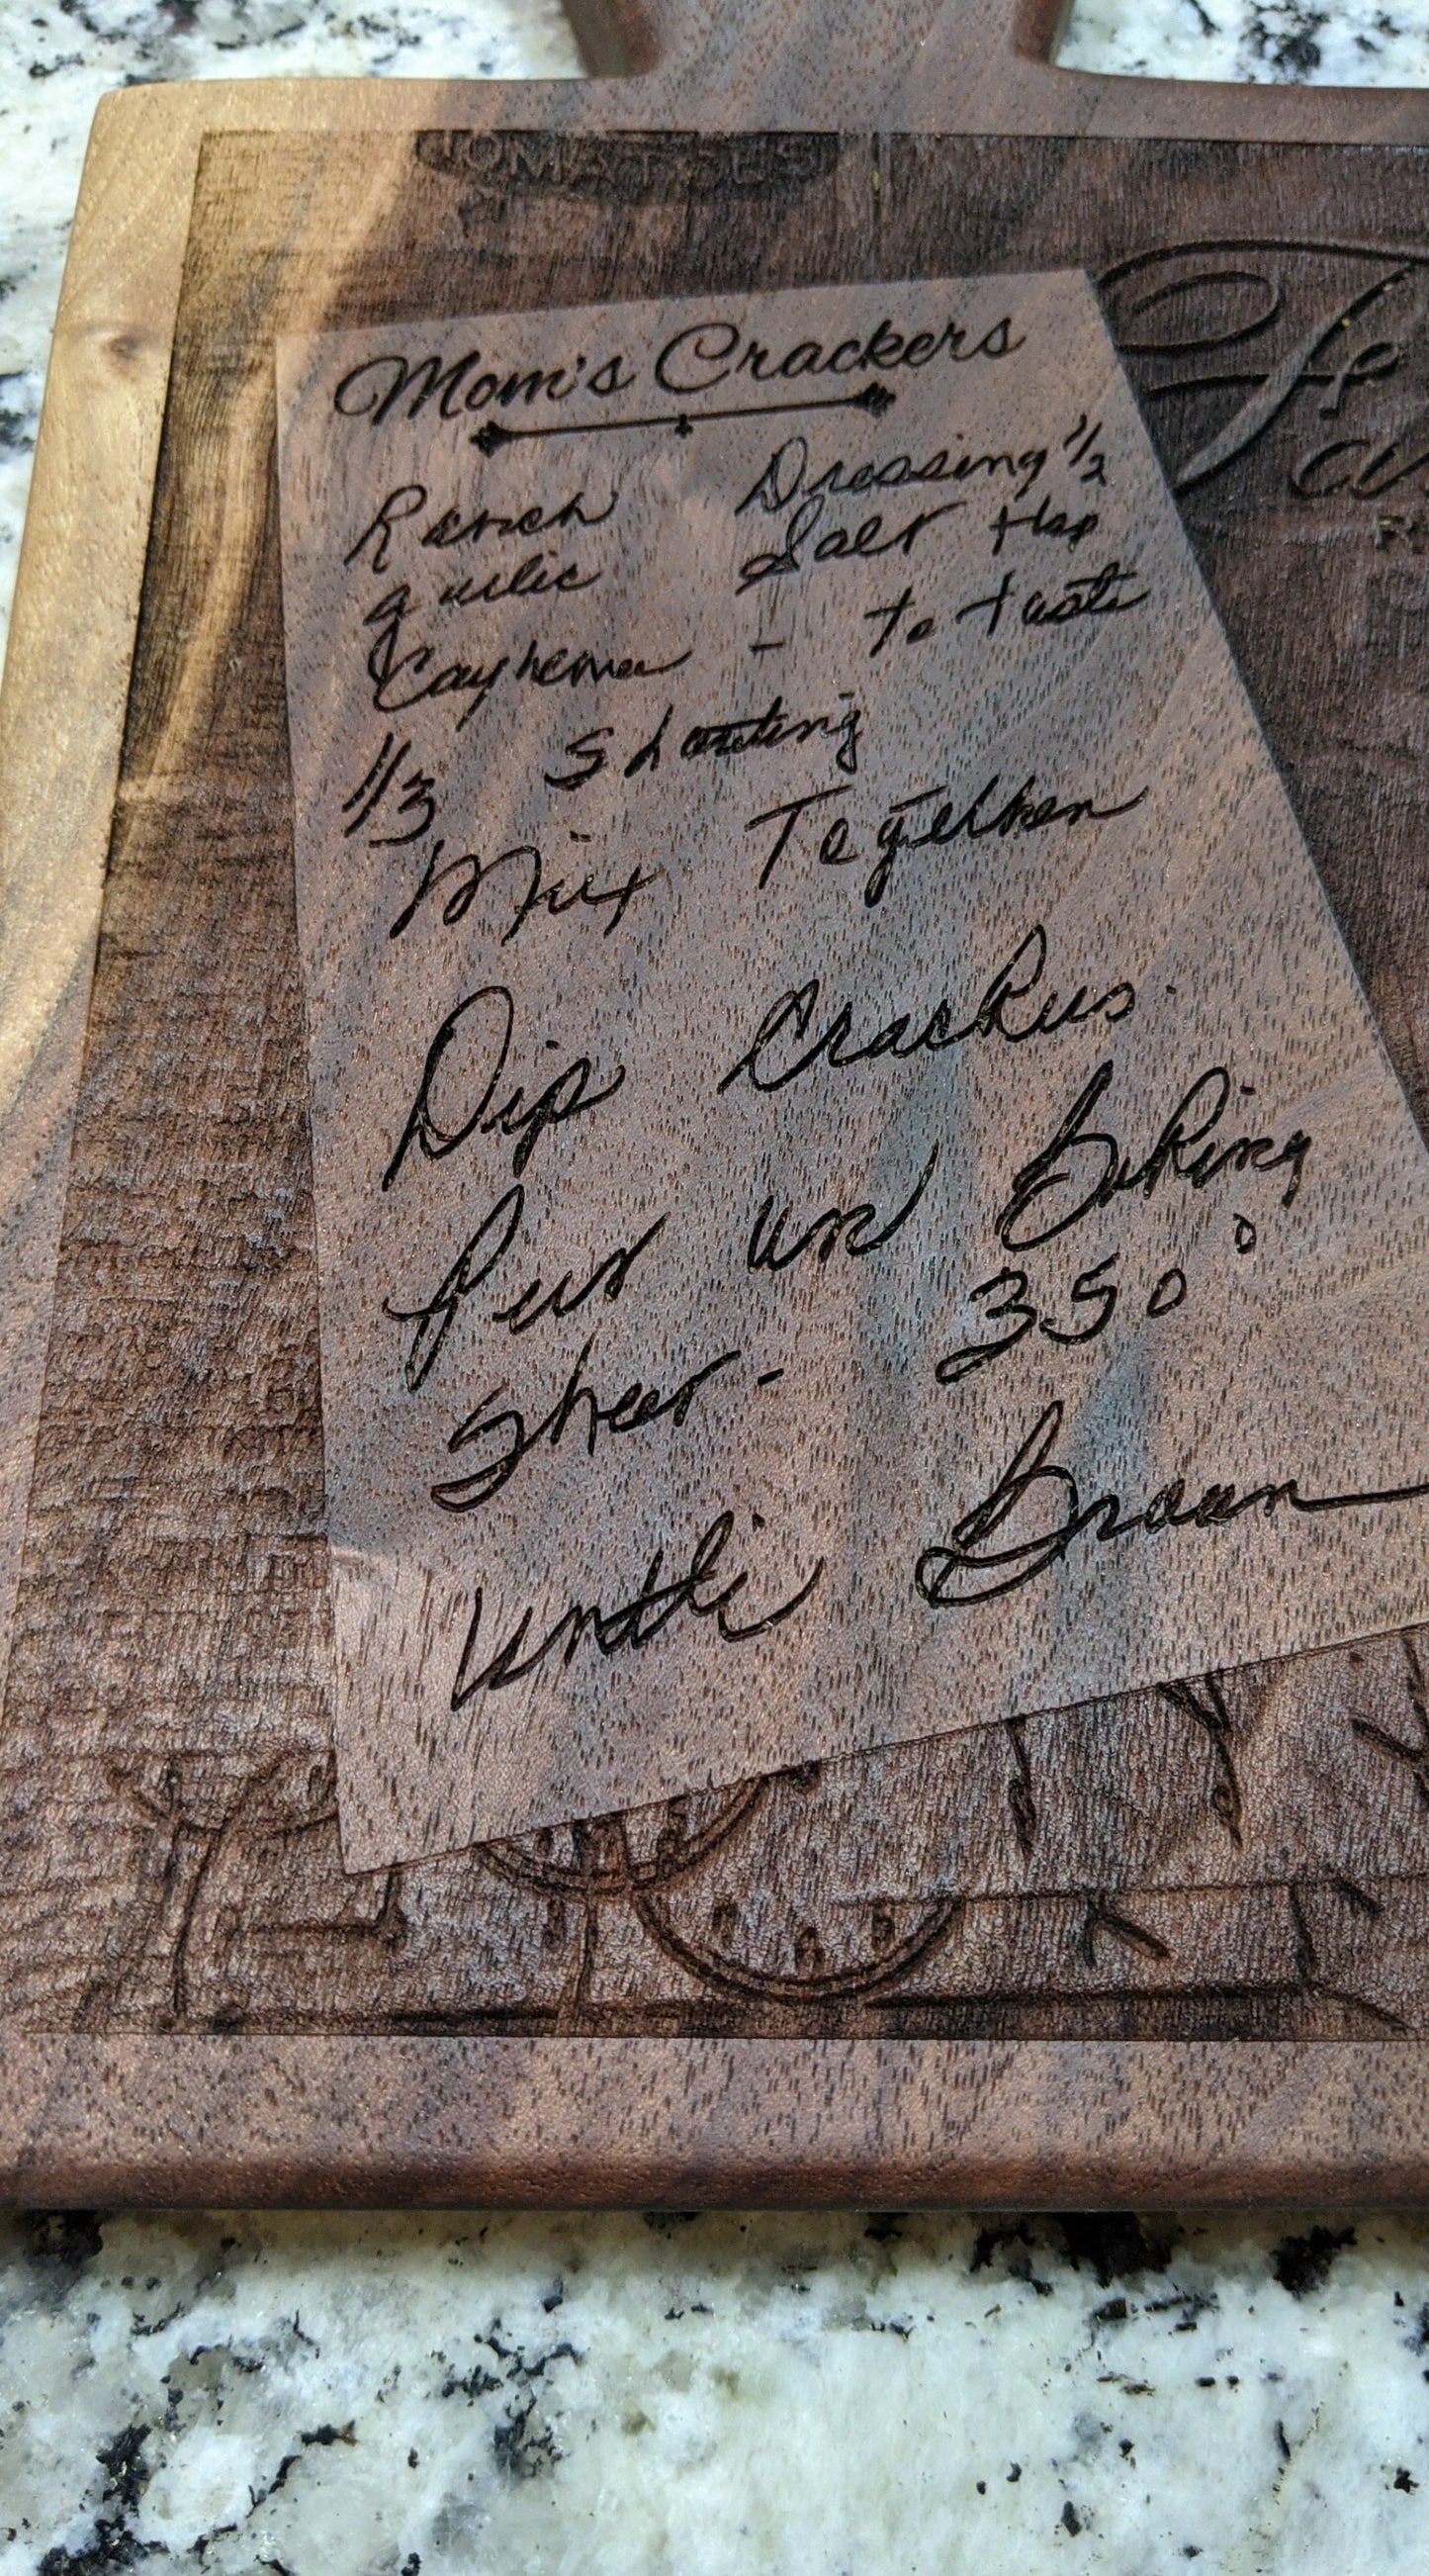 TOMATOES
Mom's Crackers
Ranch Dressing 1/2
Garlic Salt tsp
Cayhenne - to taste
1/3 Shorting
Mix Together
Dip Crackers.
Put on Baking
Sheet - 350°
Until Brown
Fe